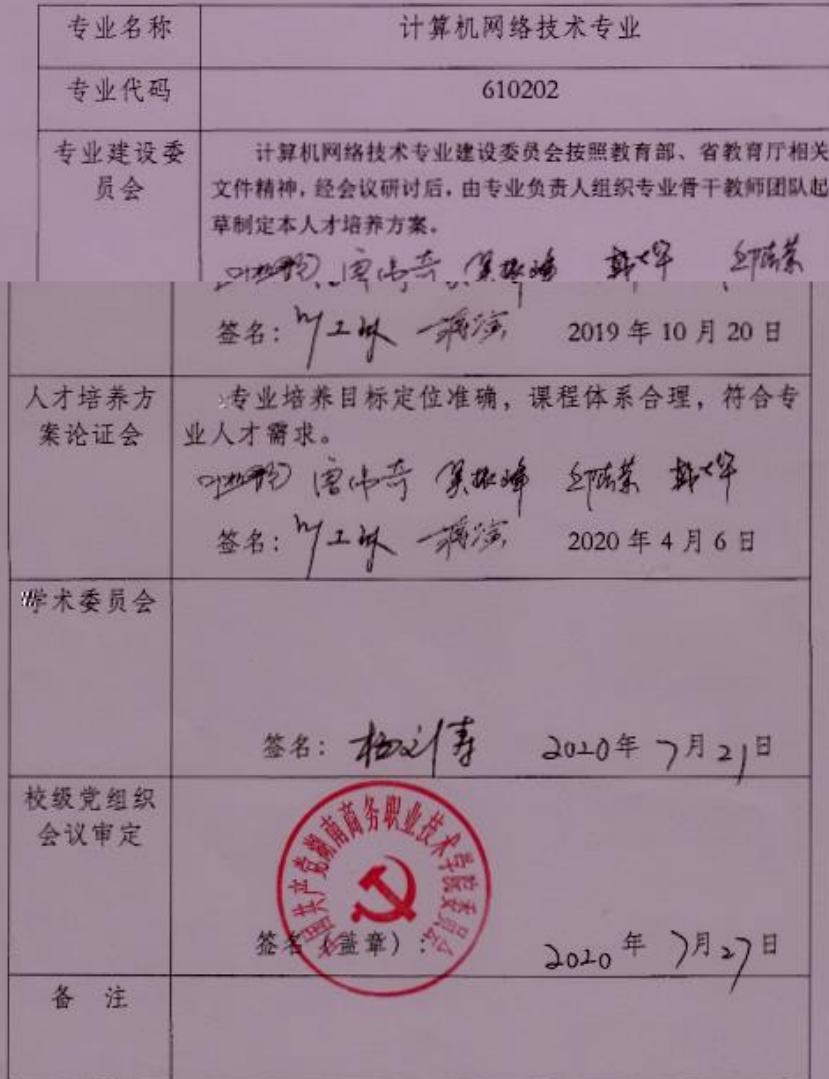 专业名称 计算机网络技术专业
专业代码 610202
专业建设委 计算机网络技术专业建设委员会按照教育部、省教育厅相关
员会 文件精神，经会议研讨后，由专业负责人组织专业骨干教师团队起
草制定本人才培养方案。
唐伟奇 吴振峰
签名： 蒋演 2019年10月20日
人才培养方 专业培养目标定位准确，课程体系合理，符合专
案论证会 业人才需求。
唐伟奇 吴振峰
签名： 蒋演 2020年4月6日
学术委员会
签名： 2020年7月21日
校级党组织
会议审定
中国共产党湖南商务职业技术学院委员会
签名（盖章）： 2020年7月27日
备 注